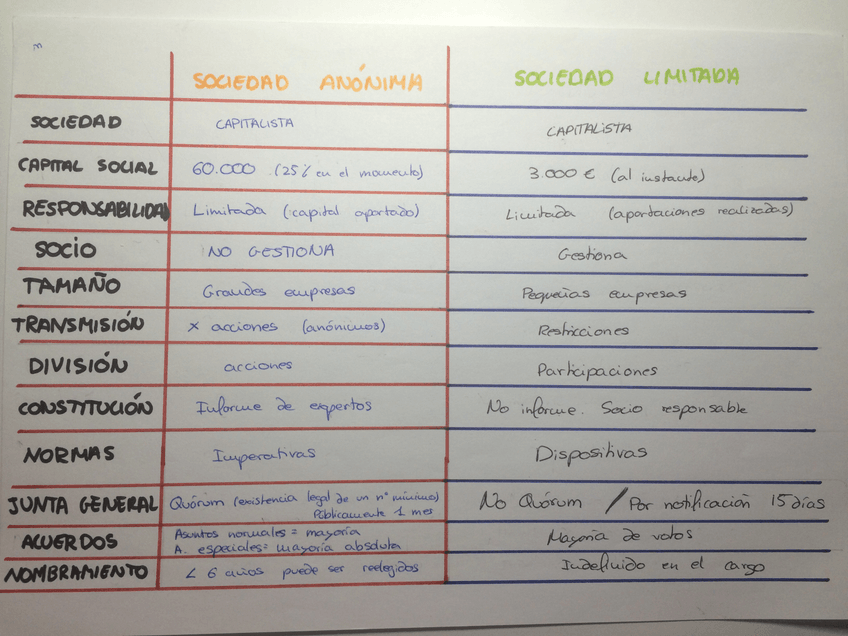 SOCIEDAD ANÓNIMA SOCIEDAD LIMITADA
SOCIEDAD CAPITALISTA CAPITALISTA
CAPITAL SOCIAL 60.000 (25% en el momento) 3.000 € (al instante)
RESPONSABILIDAD Limitada (capital aportado) Limitada (aportaciones realizadas)
SOCIO NO GESTIONA Gestiona
TAMAÑO Grandes empresas Pequeñas empresas
TRANSMISIÓN x acciones (anónimos) Restricciones
DIVISIÓN acciones Participaciones
CONSTITUCIÓN Informe de expertos No informe. Socio responsable
NORMAS Imperativas Dispositivas
JUNTA GENERAL Quórum (existencia legal de un nº mínimo) No Quórum / Por notificación 15 días
Públicamente 1 mes
ACUERDOS Asuntos normales = mayoría Mayoría de votos
A. especiales = mayoría absoluta
NOMBRAMIENTO < 6 años puede ser reelegidos Indefinido en el cargo